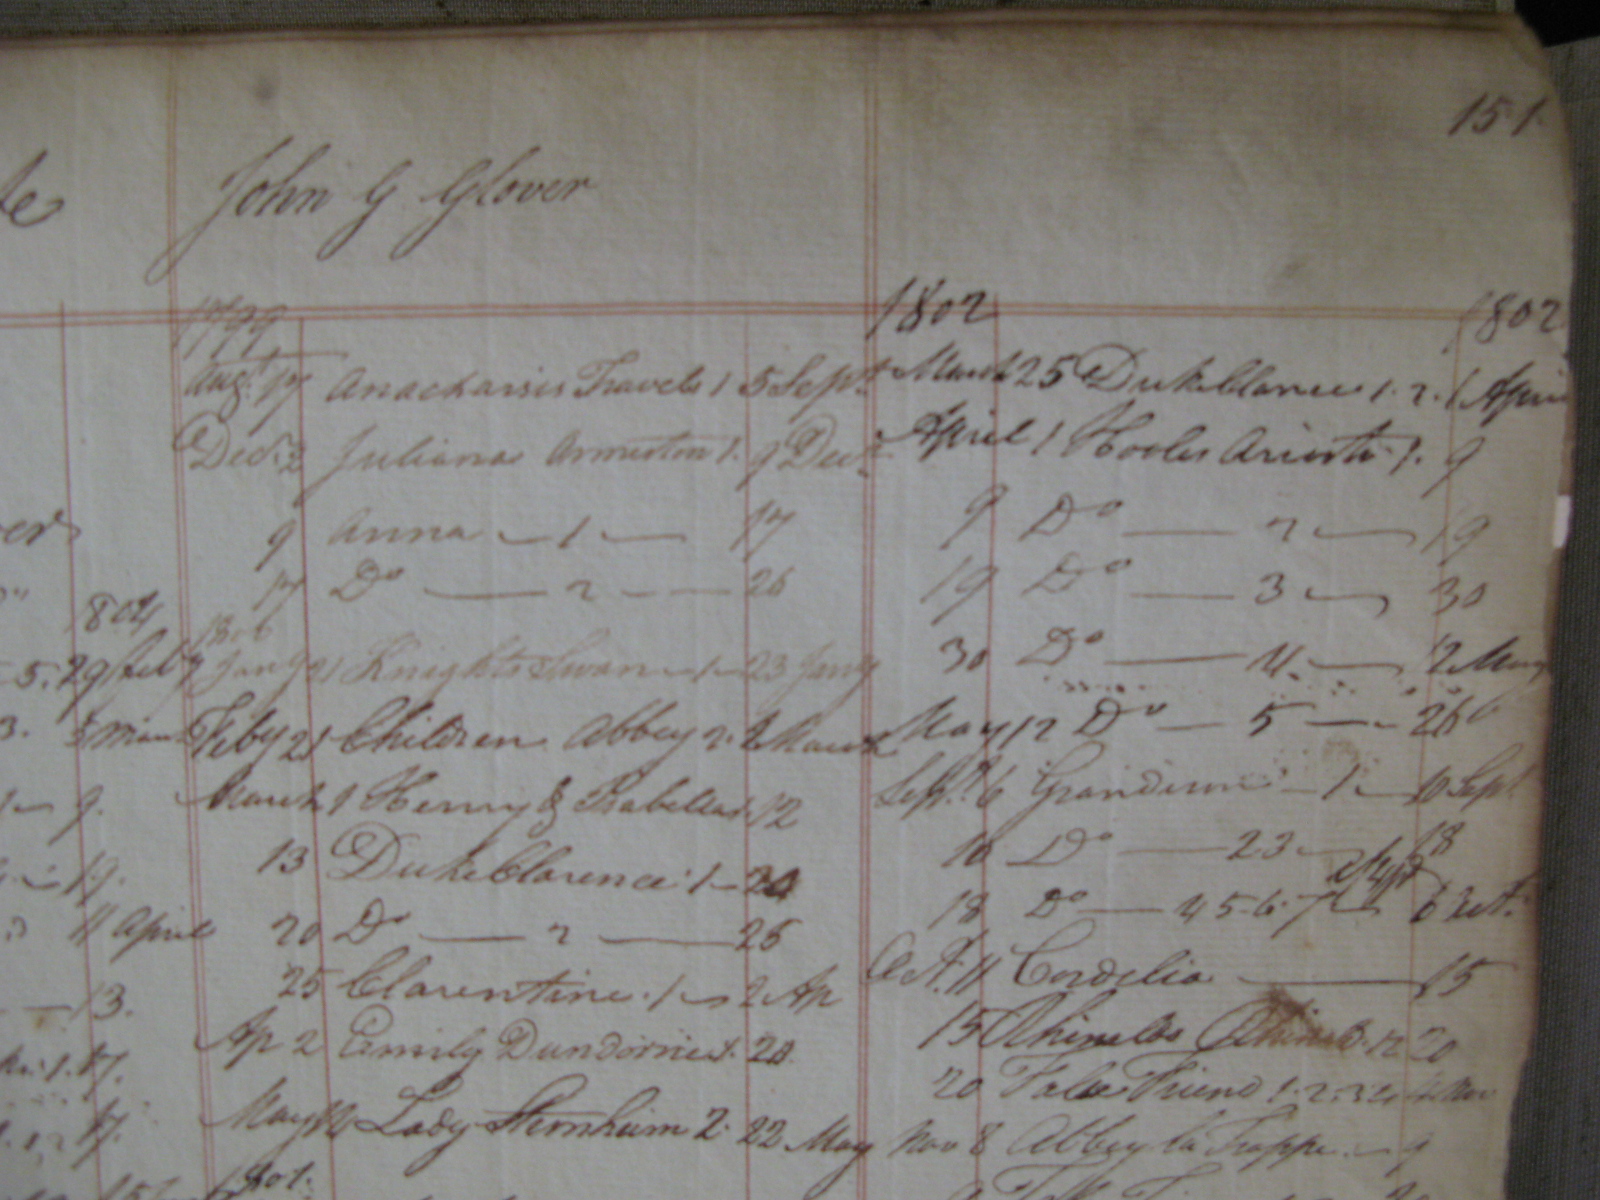 151
John G Glover
1799
Augt 17 Anacharsis Travels 1 5 Sept
Decr 2 Juliana Ormeston 1. 9 Decr
9 Anna — 1 — 17
17 Do — 2 — 26
Jany 21 Knights Swan — 1 — 23 Jany
Feby 21 Children Abbey 2. 2 March
March 1 Henry & Isabella 1. 12
13 Duke Clarence 1 — 20
20 Do — 2 — 26
25 Clarentine 1 — 2 Ap
Ap 2 Emily Dundorne 1. 20
May 12 Lady Sternheim 2. 22 May
1801.
1802 1802
March 25 Duke Clarence 1. 2. 1 April
April 1 Hooles Ariosto 1. 9
9 Do — 2 — 19
19 Do — 3 — 30
30 Do — 4. — 12 May
May 12 Do — 5 — 26
Septr 6 Grandison — 1. — 10 Sept
10 Do — 2 3 — 18
18 Do — 4 5. 6. 7 — 6 Oct.
Oct. 11 Cordelia — 15
15 20
20 False Friend 1. 2. 3 4
Nov 8 Abbey la Trappe. — 9
1804
5. 29 Feby
3.
9.
19.
11 April
13.
17.
17.